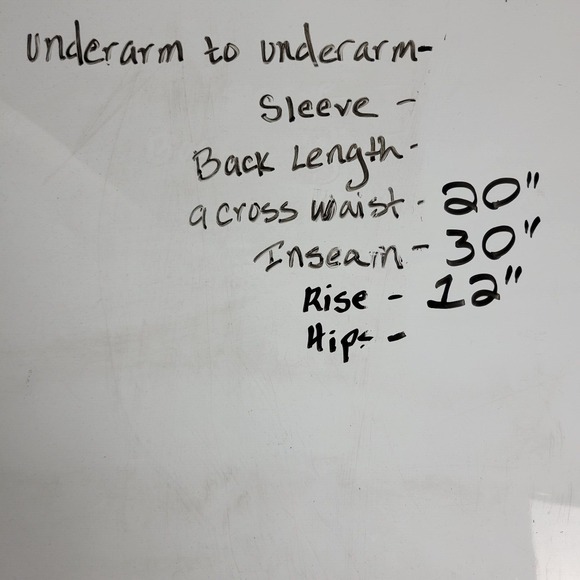 underarm to underarm-
Sleeve -
Back Length-
across waist - 20"
Inseam - 30"
Rise - 12"
Hips -